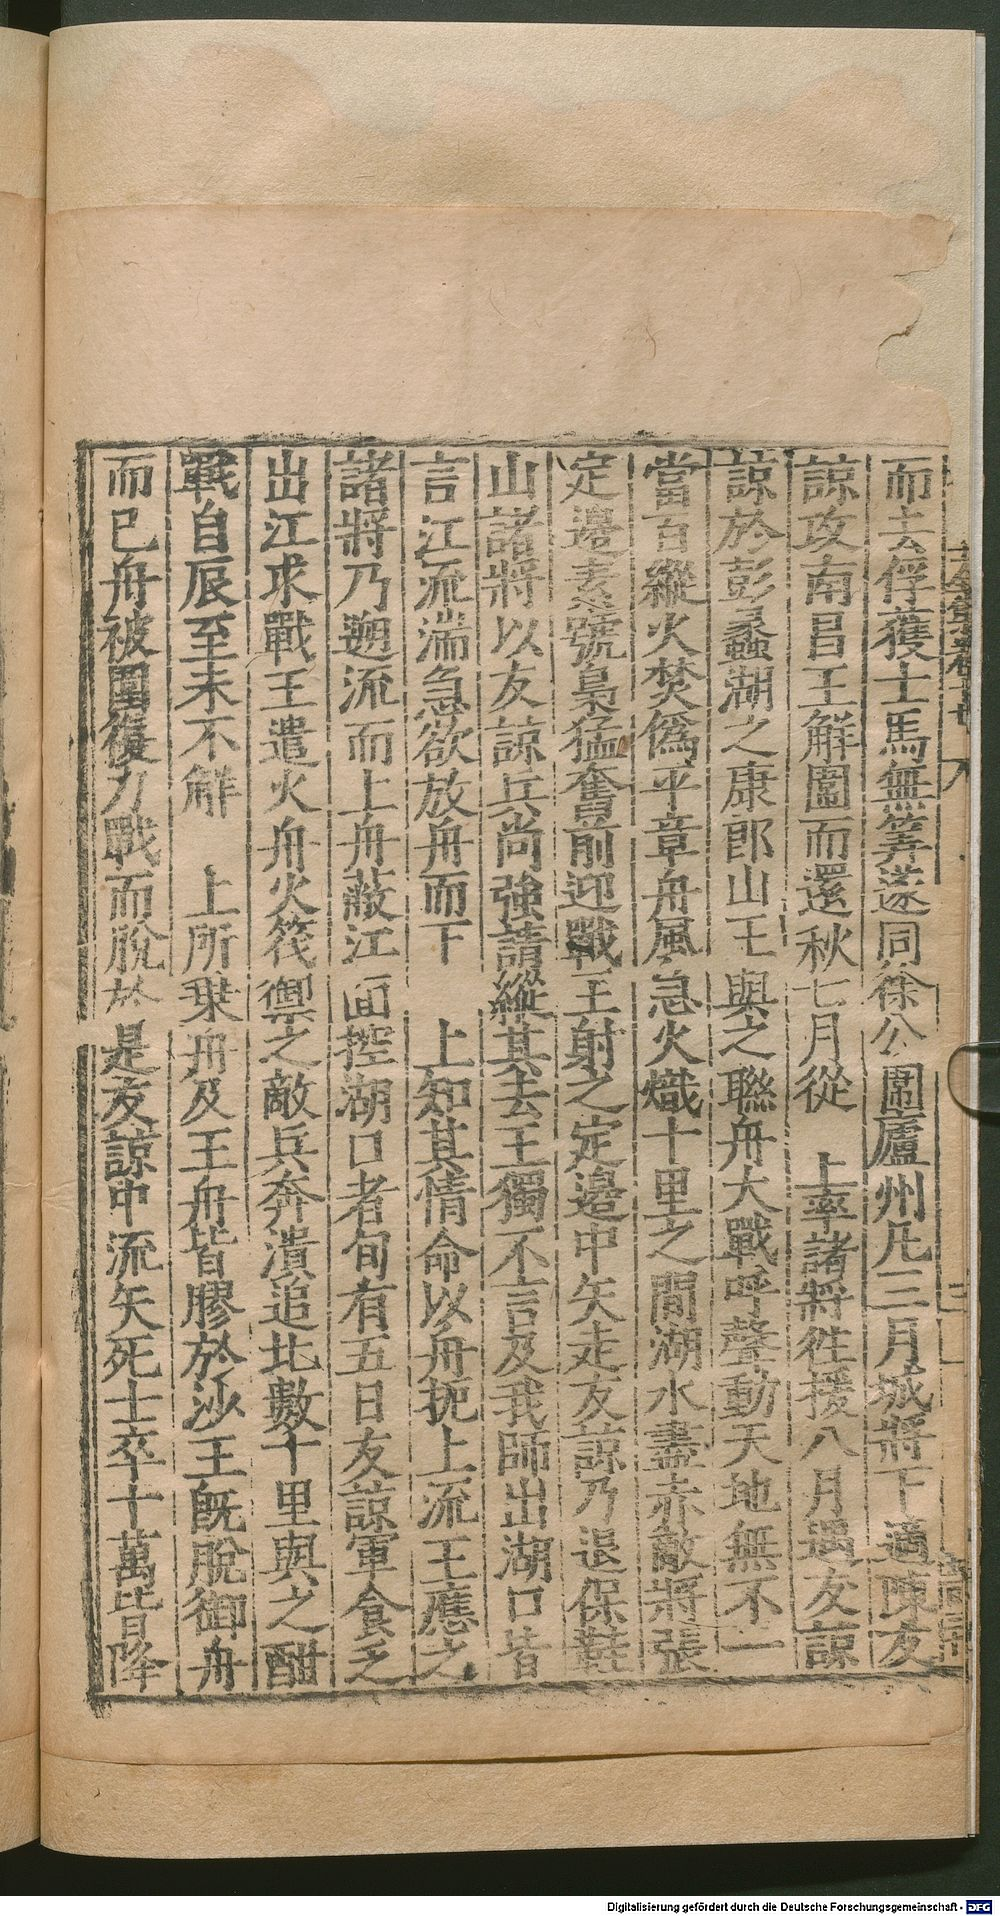 而去俘獲士馬無筭遂同徐公圍廬州凡三月城將下適陳友
諒攻南昌王解圍而還秋七月從　上率諸將徃援八月遇友諒
諒於彭蠡湖之康郎山王與之聯舟大戰呼聲動天地無不一
當百縱火焚偽平章舟風急火熾十里之間湖水盡赤敵將張
定邊素號梟猛奮前迎戰王射之定邊中矢走友諒乃退保鞋
山諸將以友諒兵尚強請縱其去王獨不言及我師出湖口皆
言江流湍急欲放舟而下　上知其情命以舟扼上流王應之
諸將乃遡流而上舟蔽江面控湖口者旬有五日友諒軍食乏
出江求戰王遣火舟火筏禦之敵兵奔潰追北數十里與之酣
戰自辰至未不解　上所乗舟及王舟皆膠於沙王旣脫御舟
而已舟被圍復力戰而脫於是友諒中流矢死士卒十萬皆降
Digitalisierung gefördert durch die Deutsche Forschungsgemeinschaft - DFG